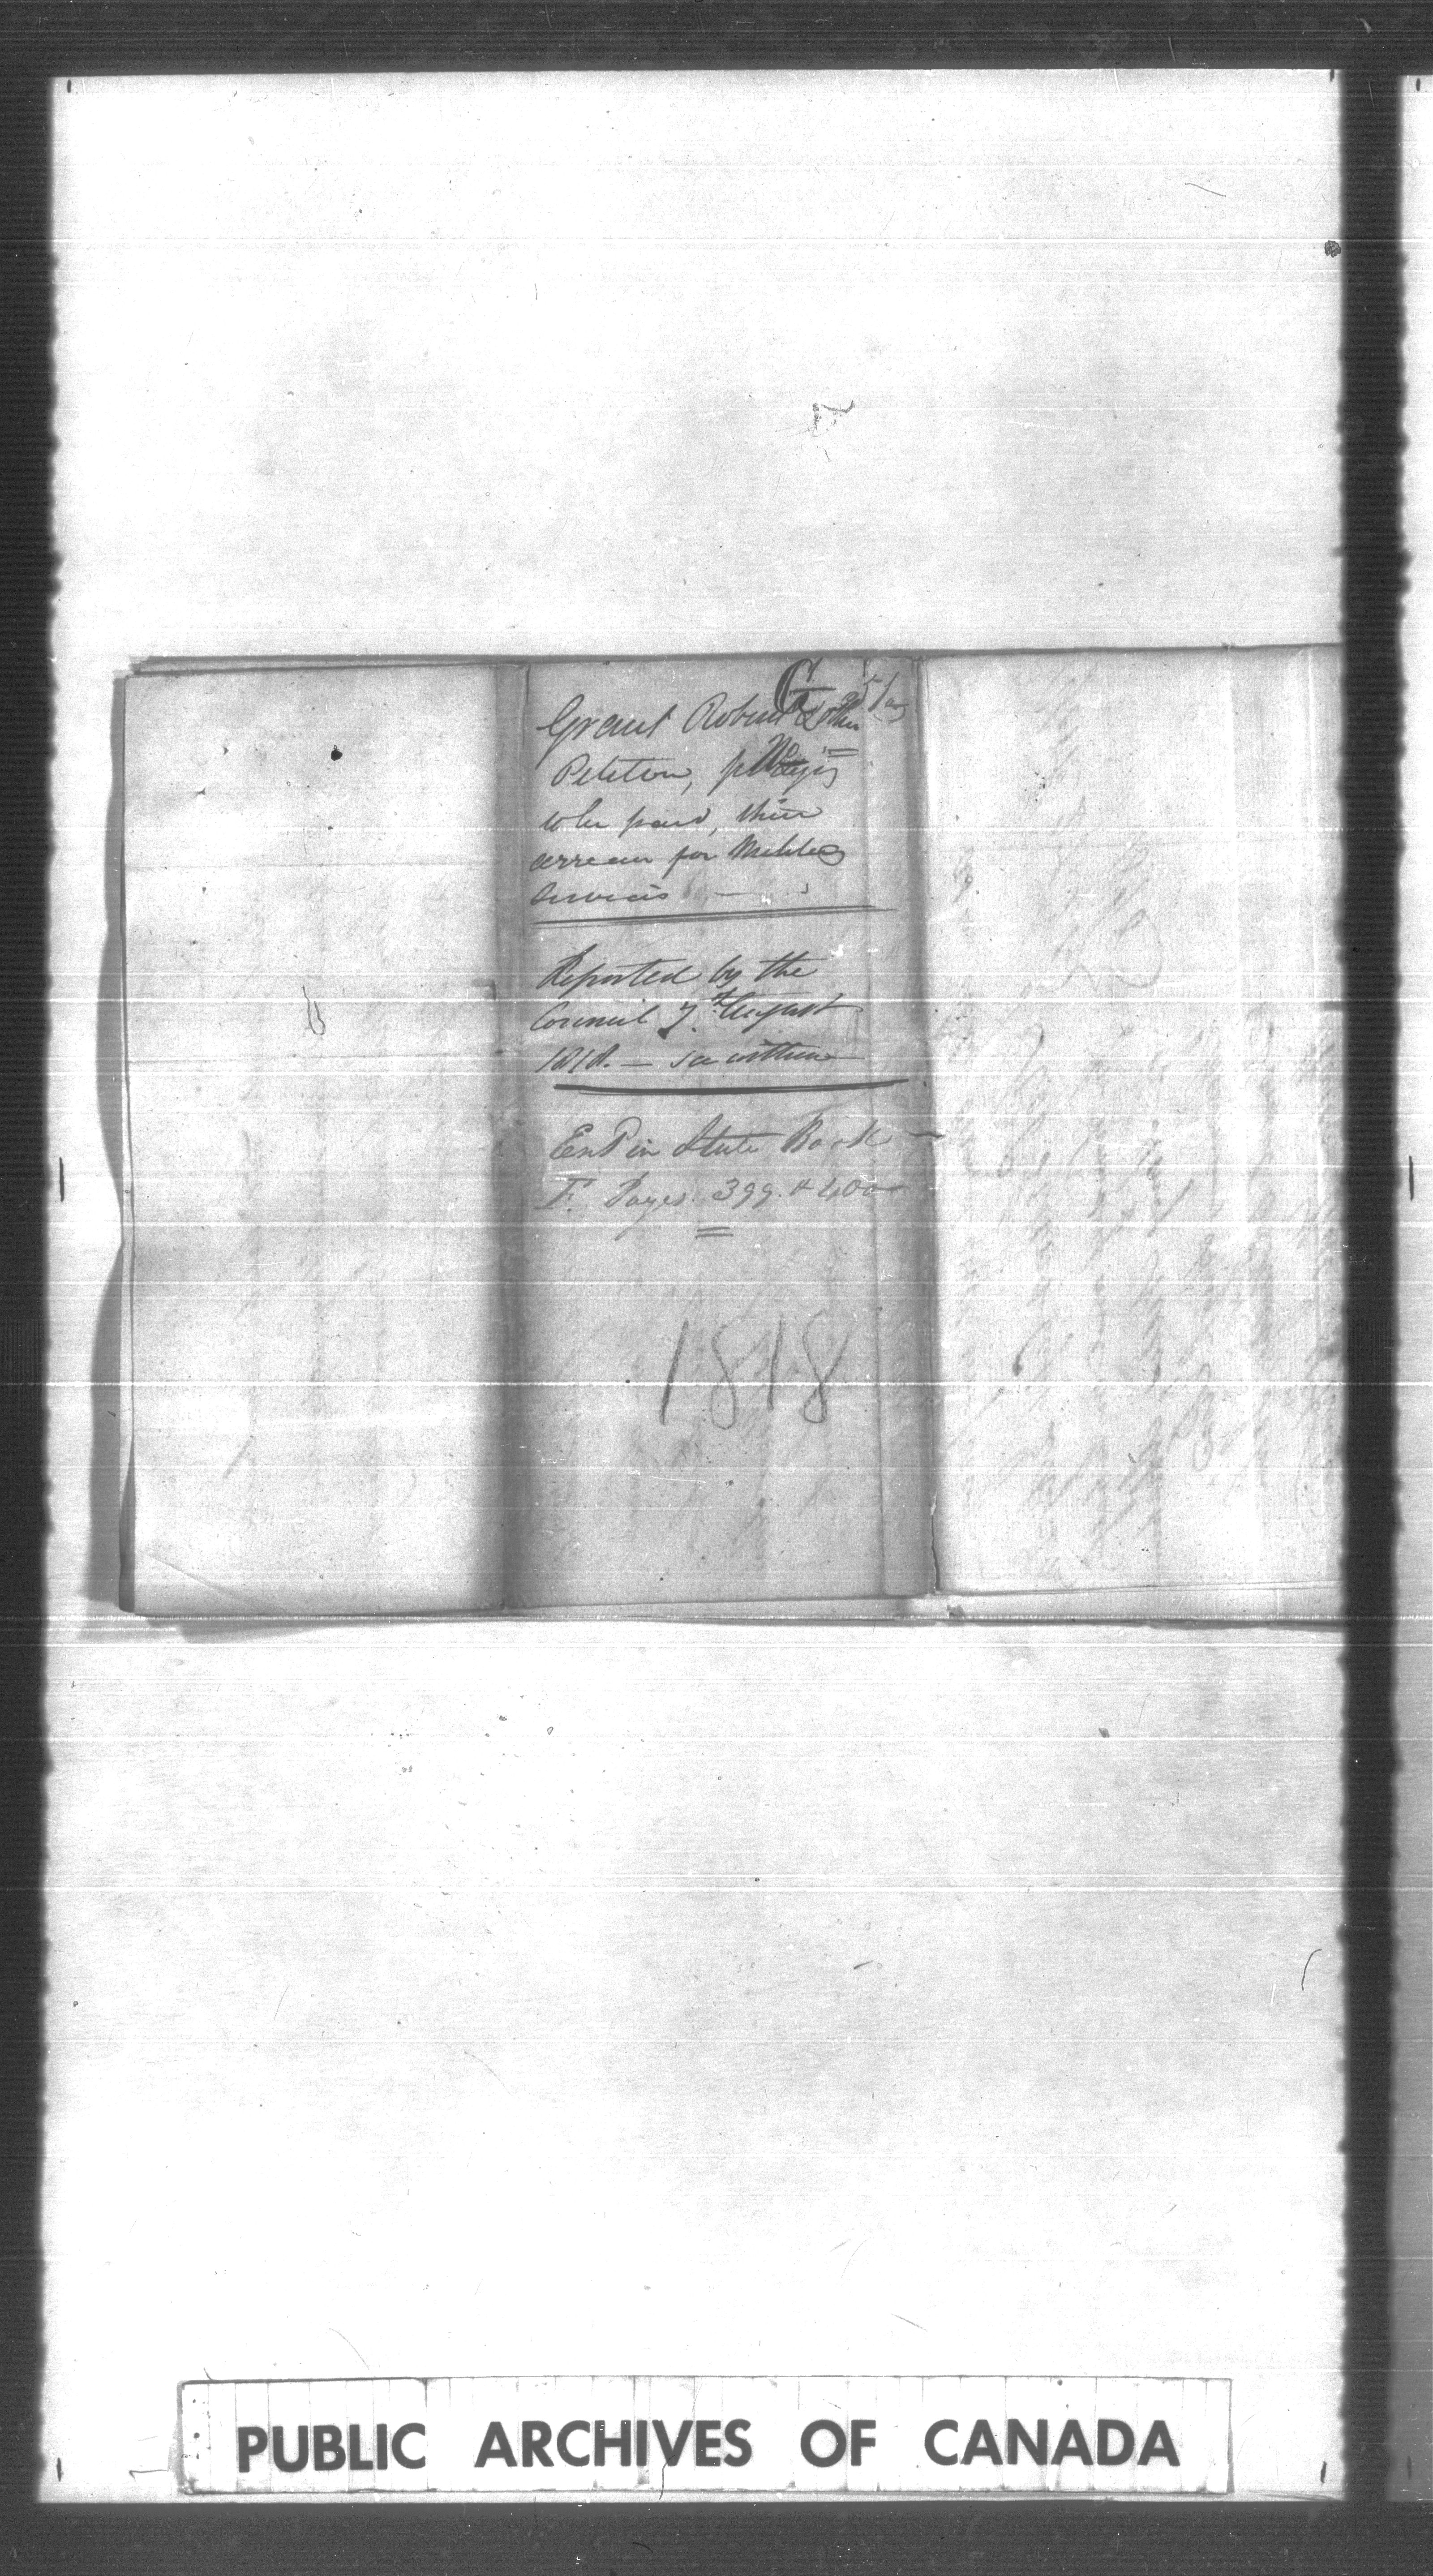 G
Grant Robert & other
Petition, praying
to be paid, their
arrears for Militia
Services —
Reported by the
Council 7th August
1818. — see within
Entd in State Book
F. Pages 399. & 400
1818
PUBLIC ARCHIVES OF CANADA